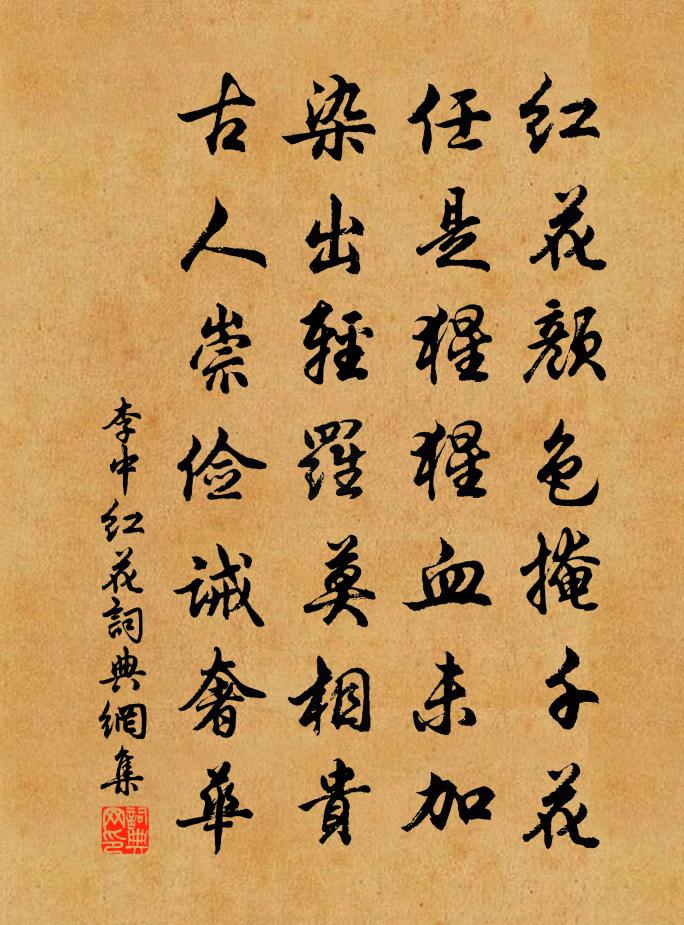 红花颜色掩千花
任是猩猩血未加
染出輕羅莫相貴
古人崇俭誡奢華
李中红花詞典網集
詞典网印